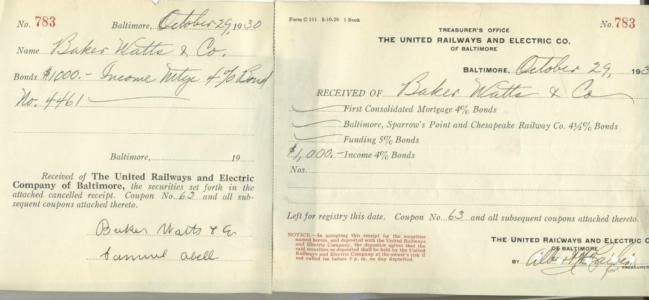 No. 783 Baltimore, October 29, 1930
Name Baker Watts & Co.
Bonds $1000.- Income Mtge 4% Bond
No. 4461
Baltimore, 19
Received of The United Railways and Electric
Company of Baltimore, the securities set forth in the
attached cancelled receipt. Coupon No. 63 and all sub-
sequent coupons attached thereto.
Baker Watts & Co
Samuel Abell
Form C 111 8-10-29 1 Book
No. 783
TREASURER'S OFFICE
THE UNITED RAILWAYS AND ELECTRIC CO.
OF BALTIMORE
BALTIMORE, October 29, 193
RECEIVED OF Baker Watts & Co
First Consolidated Mortgage 4% Bonds
Baltimore, Sparrow's Point and Chesapeake Railway Co. 4½% Bonds
Funding 5% Bonds
$1,000.- Income 4% Bonds
Nos.
Left for registry this date. Coupon No. 63 and all subsequent coupons attached thereto.
NOTICE.—In accepting this receipt for the securities
named herein, and deposited with the United Railways
and Electric Company, the depositor agrees that the
said securities so deposited shall be held by the United
Railways and Electric Company at the owner's risk if
not called for before 3 p. m. on day deposited.
THE UNITED RAILWAYS AND ELECTRIC C
OF BALTIMORE
BY
TREASURER